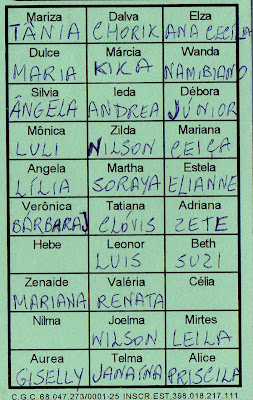 Mariza Dalva Elza
TÂNIA CHORIK ANA CECÍLIA
Dulce Márcia Wanda
MARIA KIKA NAMIBIANO
Silvia Ieda Débora
ÂNGELA ANDREA JÚNIOR
Mônica Zilda Mariana
LULI NILSON CEIÇA
Angela Martha Estela
LÍLIA SORAYA ELIANNE
Verônica Tatiana Adriana
BÁRBARAJ CLÓVIS ZETE
Hebe Leonor Beth
LUIS SUZI
Zenaide Valéria Célia
MARIANA RENATA
Nilma Joelma Mirtes
WILSON LEILA
Aurea Telma Alice
GISELLY JANAINA PRISCILA
C.G.C. 68.047.273/0001-25 INSCR.EST.398.018.217.111